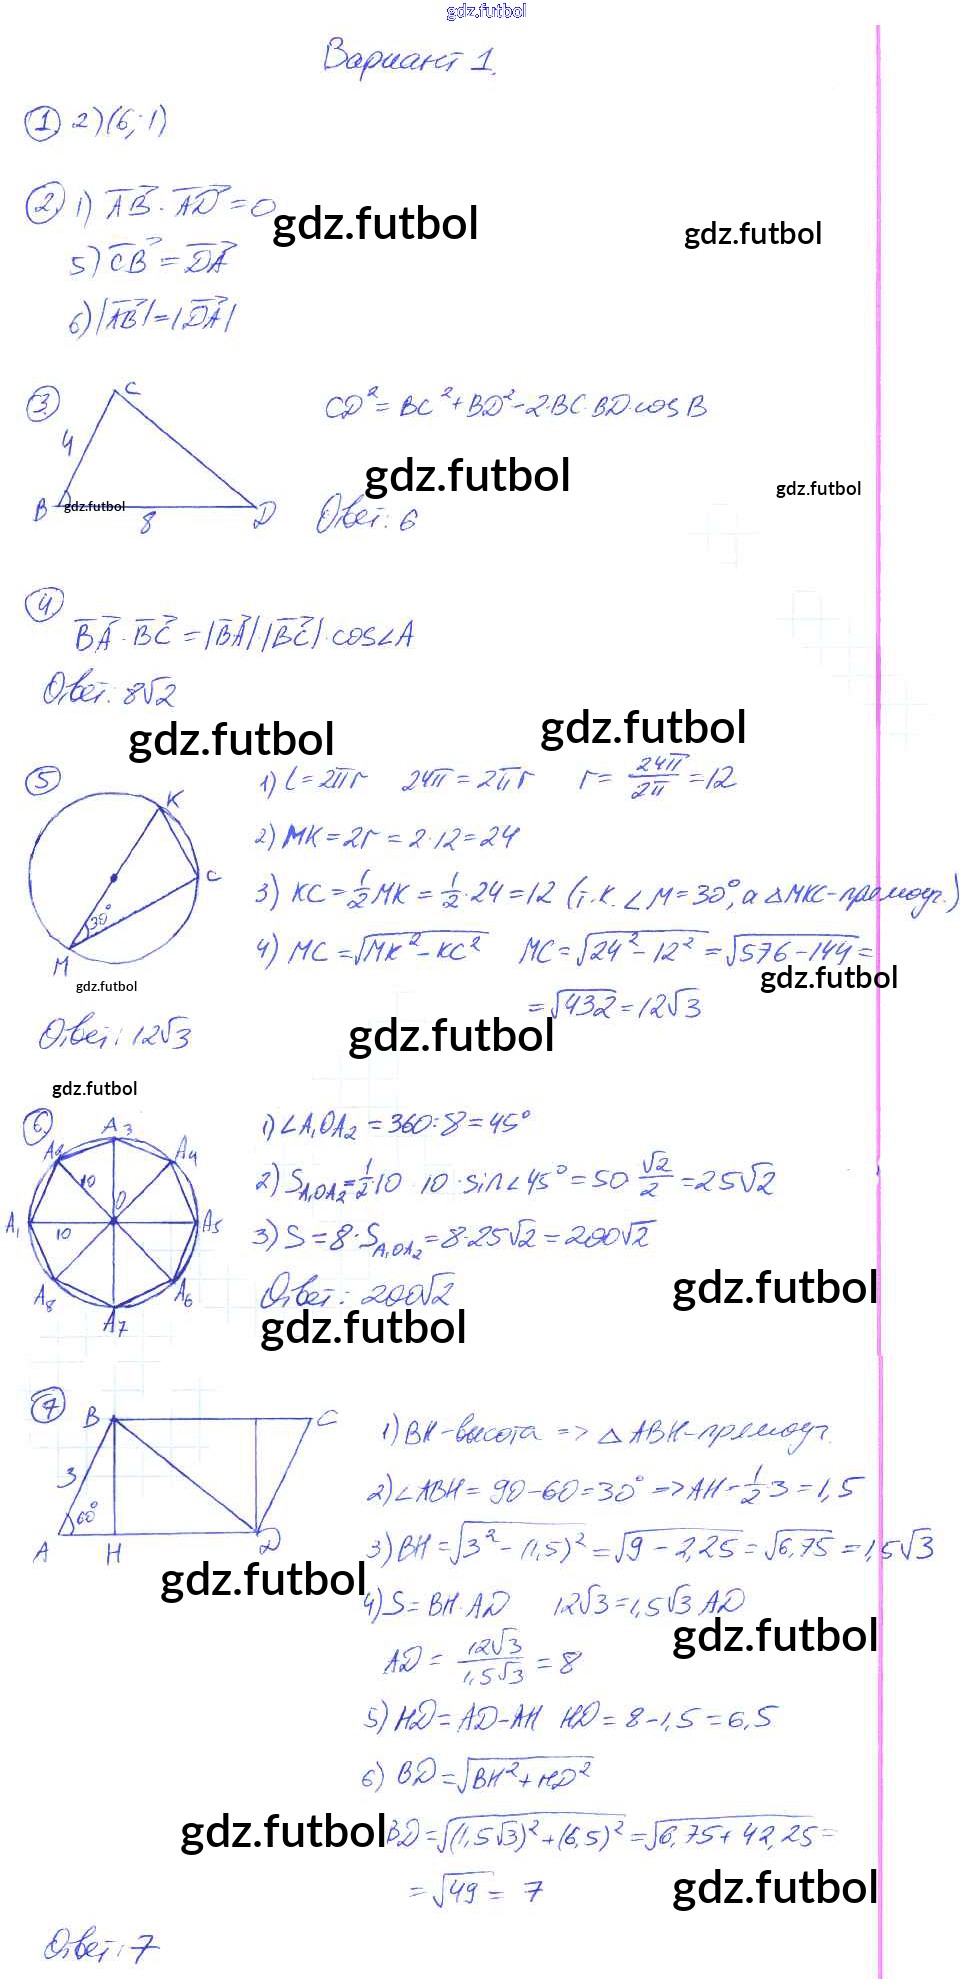 gdz.futbol
Вариант 1.
① 2) (6; 1)
② 1) AB⃗ · AD⃗ = 0
gdz.futbol
gdz.futbol
5) CB⃗ = DA⃗
6) |AB⃗| = |DA⃗|
③ C
4
B
8
D
gdz.futbol
CD² = BC² + BD² - 2·BC·BD·cos B
gdz.futbol
gdz.futbol
Ответ: 6
④
BA⃗ · BC⃗ = |BA⃗|·|BC⃗|·cos∠A
Ответ: 8√2
gdz.futbol
gdz.futbol
⑤ K
C
30°
M
gdz.futbol
1) C = 2πr 24π = 2πr r = 24π/2π = 12
2) MK = 2r = 2·12 = 24
3) KC = 1/2 MK = 1/2 · 24 = 12 (т.к. ∠M = 30°, а △MKC - прямоуг.)
4) MC = √(MK² - KC²) MC = √(24² - 12²) = √(576 - 144) =
gdz.futbol
= √432 = 12√3
Ответ: 12√3
gdz.futbol
gdz.futbol
⑥ A₃
A₂
A₄
10
O
A₁
10
A₅
A₈
A₆
A₇
1) ∠A₁OA₂ = 360:8 = 45°
2) S A₁OA₂ = 1/2 10 · 10 · sin∠45° = 50 √2/2 = 25√2
3) S = 8·S A₁OA₂ = 8·25√2 = 200√2
Ответ: 200√2
gdz.futbol
gdz.futbol
⑦ B
C
3
60°
A
H
D
gdz.futbol
1) BH - высота => △ABH - прямоуг.
2) ∠ABH = 90 - 60 = 30° => AH = 1/2·3 = 1,5
3) BH = √(3² - (1,5)²) = √(9 - 2,25) = √6,75 = 1,5√3
4) S = BH·AD 12√3 = 1,5√3 AD
gdz.futbol
AD = 12√3/1,5√3 = 8
5) HD = AD - AH HD = 8 - 1,5 = 6,5
6) BD = √(BH² + HD²)
gdz.futbol
BD = √((1,5√3)² + (6,5)²) = √(6,75 + 42,25) =
= √49 = 7
gdz.futbol
Ответ: 7